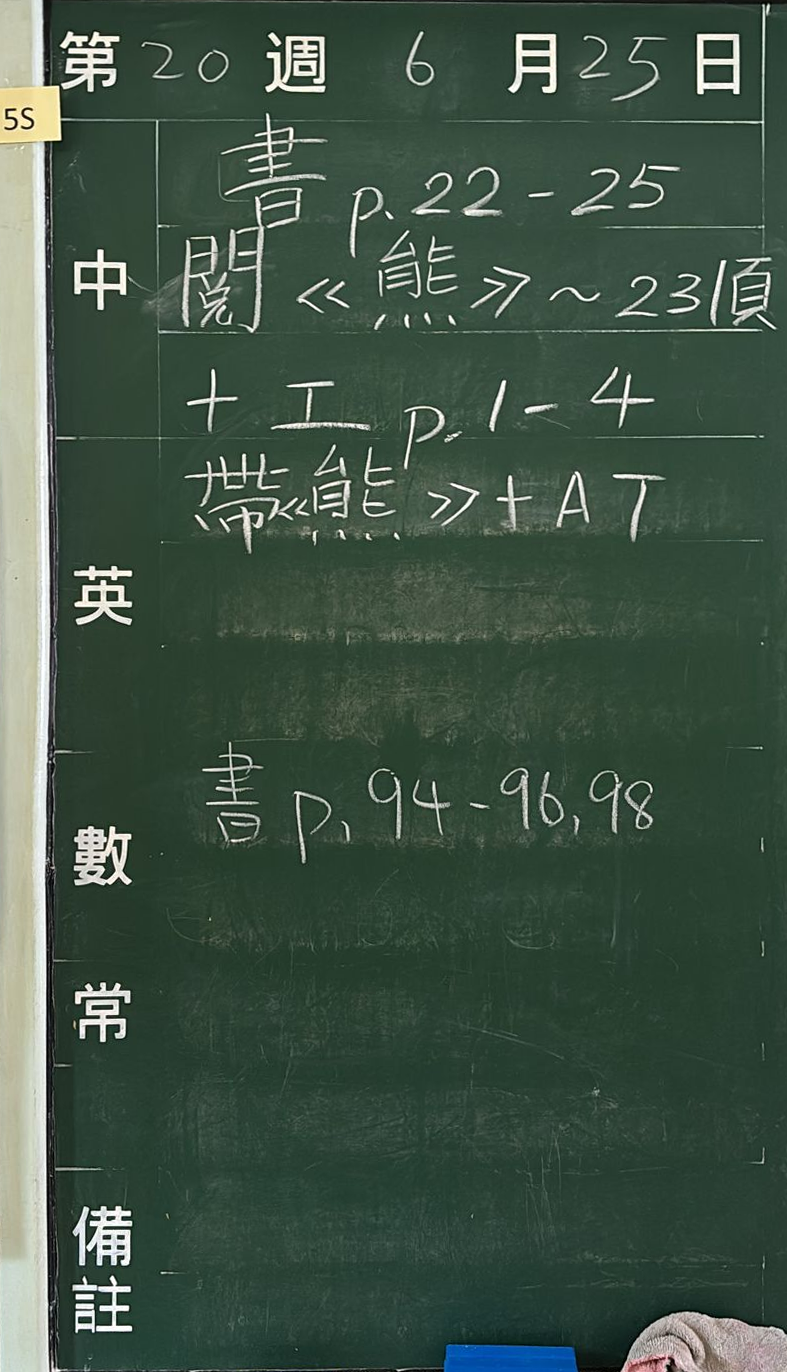 第20週 6 月25日
5S
中
書 p.22-25
閱《熊》~23頁
+ 工 p.1-4
帶《熊》+AT
英
數
書 p.94-96,98
常
備註